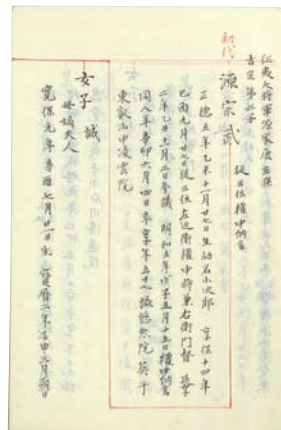 初代
征夷大将軍源家康玄孫
吉宗第二子
源宗武
従三位権中納言
正徳五年乙未十一月廿七日生幼名小次郎 享保十四年
己酉九月廿七日従三位左近衛権中将兼右衛門督 延享
二年乙丑十一月二日参議 明和五年戊子五月十五日権中納言
同八年辛卯六月四日卒享年五十七 悠然院 葬于
東叡山中凌雲院
女子 誠
母嫡夫人
寛保元年辛酉七月廿一日生 宝暦二年壬申三月朔日